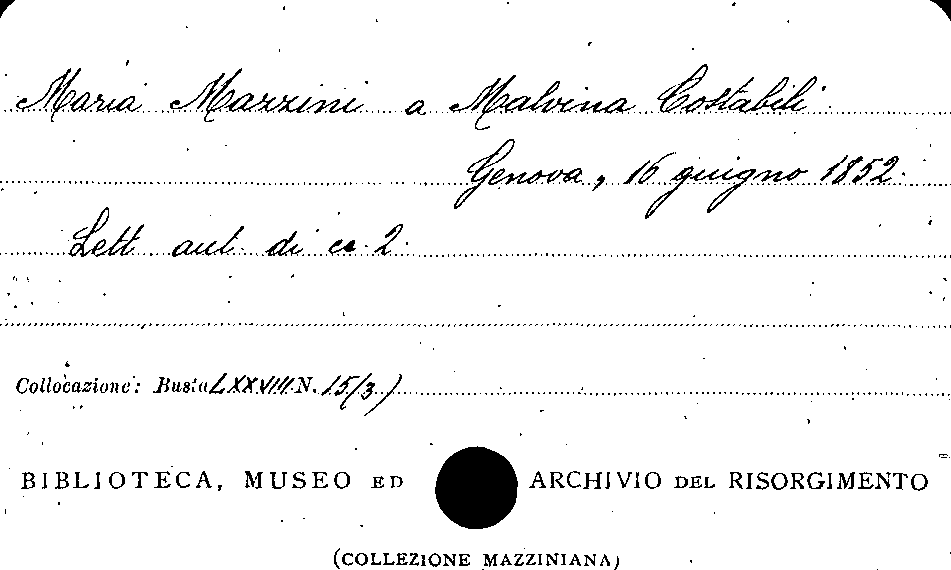 Maria Mazzini a Malvina Costabili
Genova, 16 giugno 1852.
Lett. aut. di cc. 2.
Collocazione: Busta LXXVIII N. 15(3)
BIBLIOTECA, MUSEO ED ARCHIVIO DEL RISORGIMENTO
(COLLEZIONE MAZZINIANA)